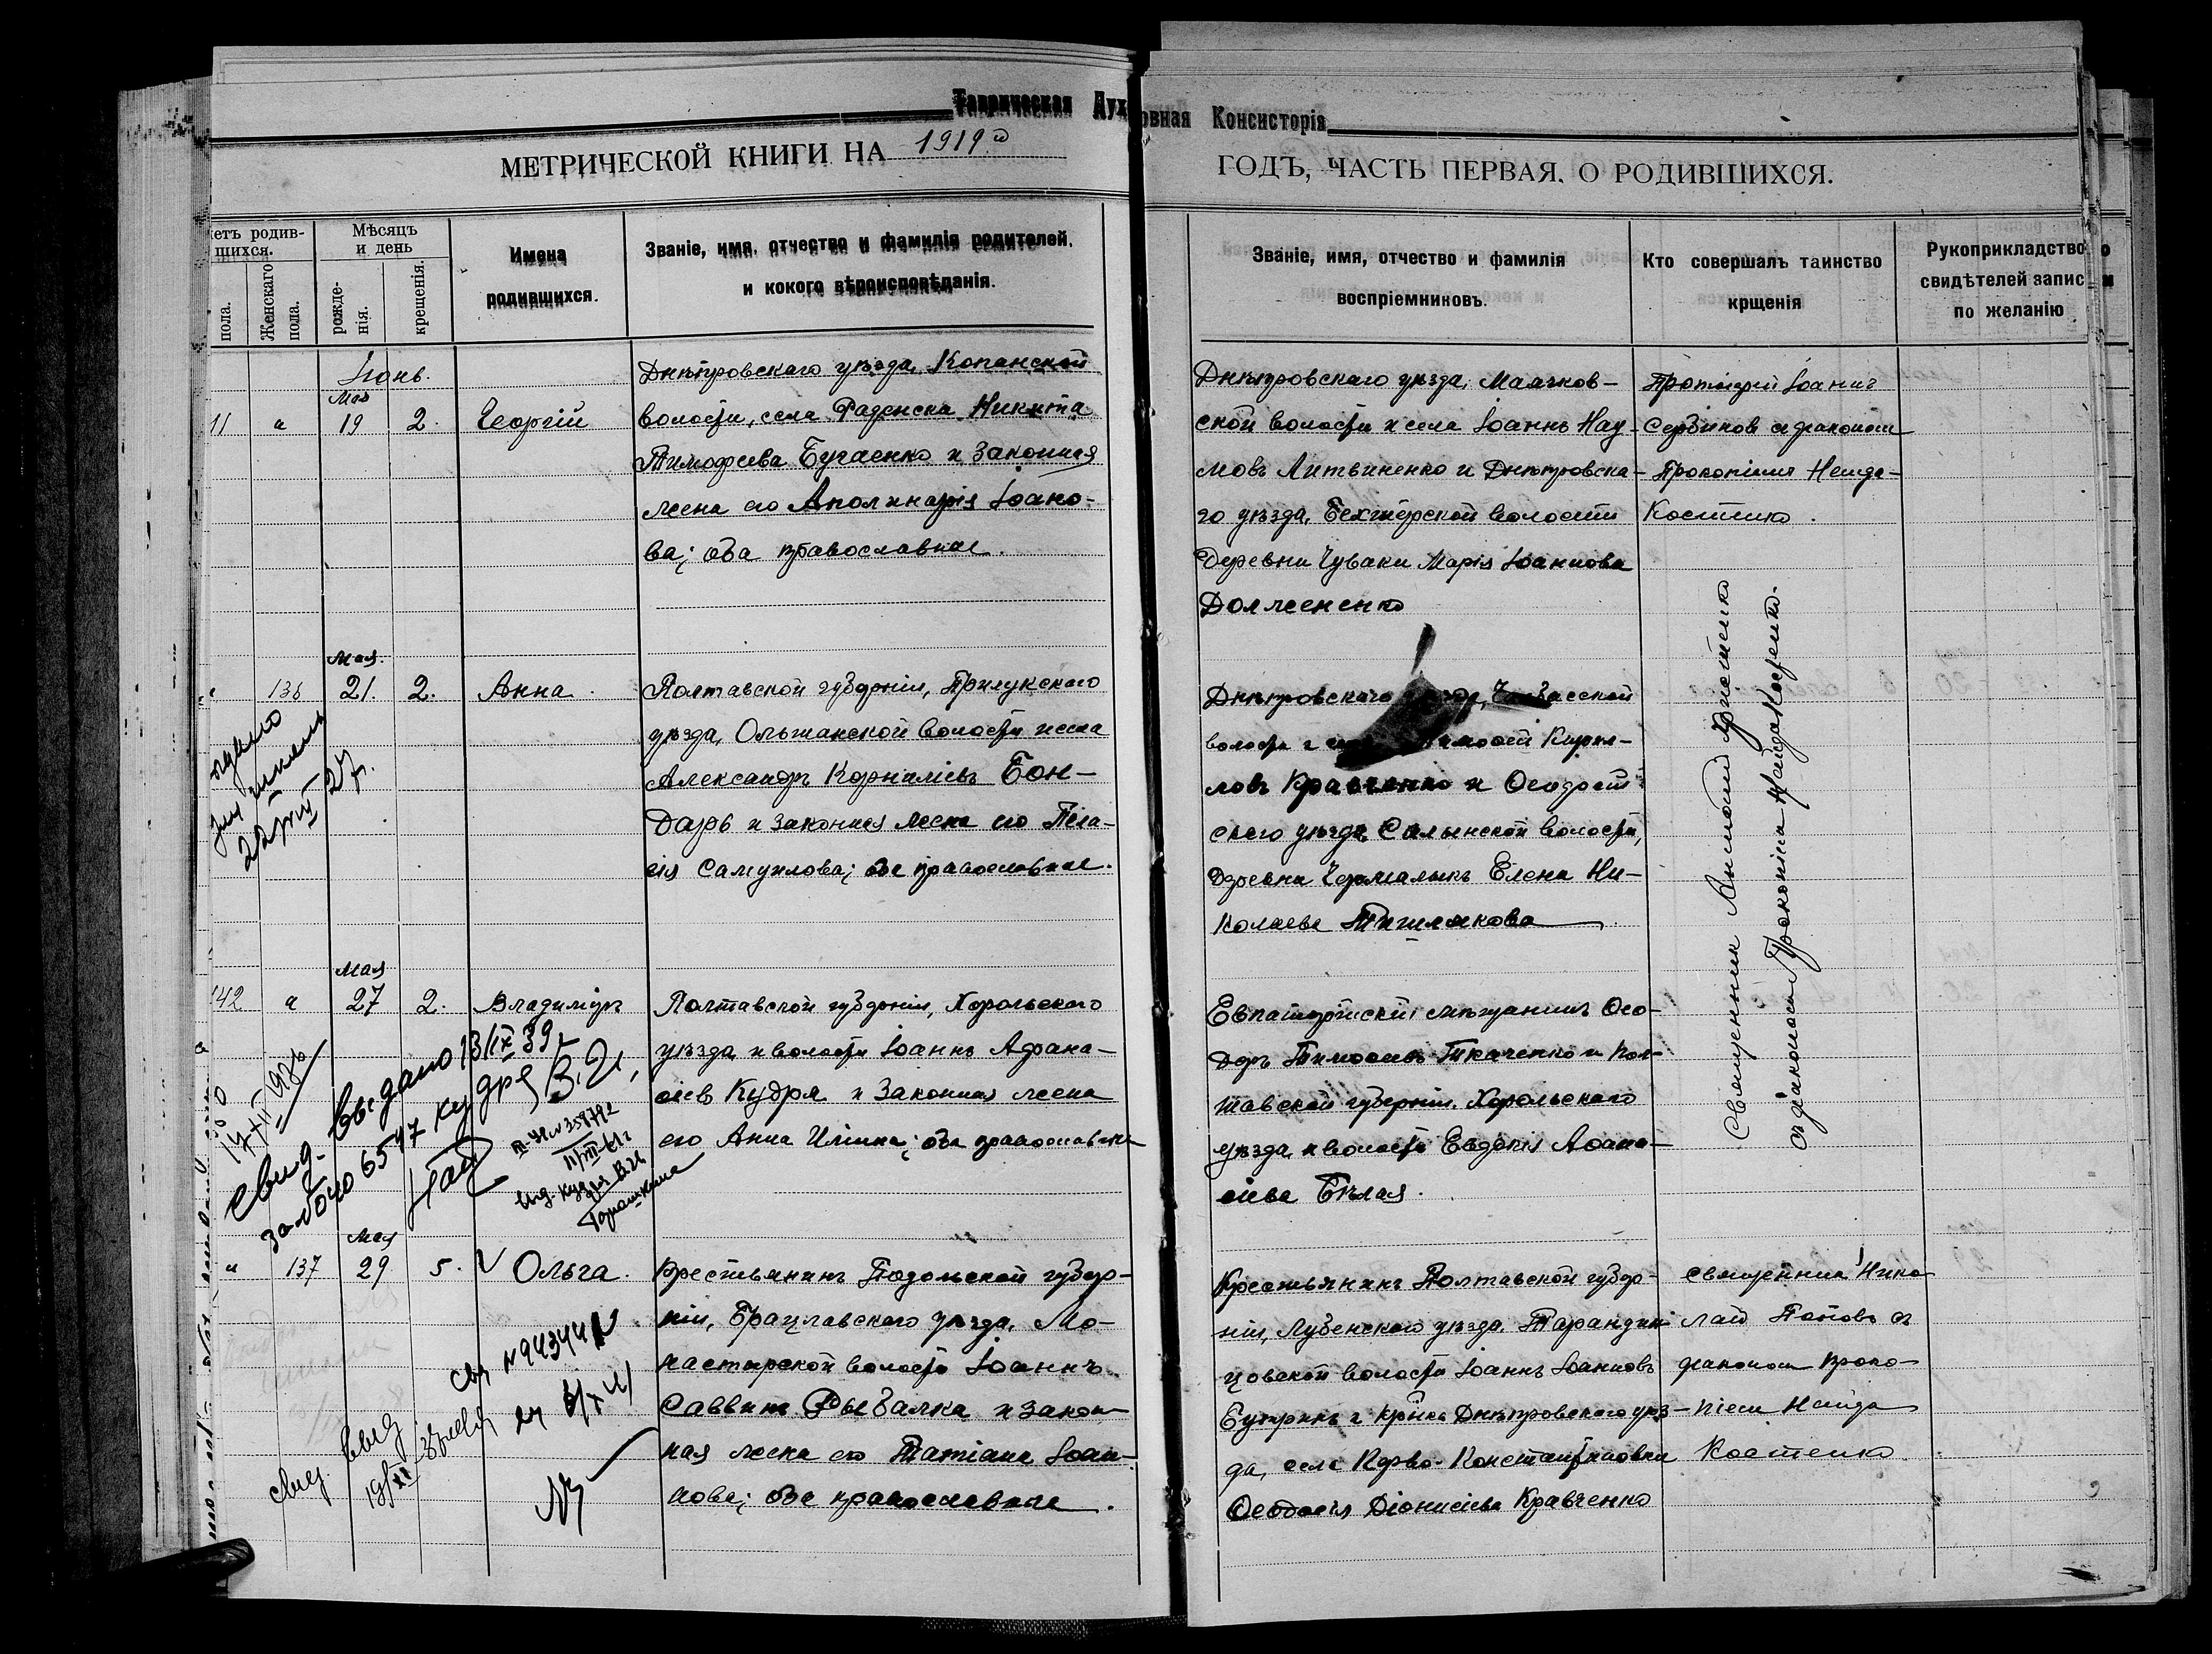 Таврическая Духовная Консисторія
МЕТРИЧЕСКОЙ КНИГИ НА 1919й ГОДЪ, ЧАСТЬ ПЕРВАЯ, О РОДИВШИХСЯ.
четъ родив-
шихся.
пола.
Женскаго
пола.
Мѣсяцъ
и день
рожде-
нія.
крещенія.
Имена
родившихся.
Званіе, имя, отчество и фамилія родителей,
и кокого вѣроисповѣданія.
Званіе, имя, отчество и фамилія
воспріемниковъ.
Кто совершалъ таинство
крщенія
Рукоприкладство
свидѣтелей запис
по желанію
Іюнь.
Мая
11 " 19 2. Георгій
Днѣпровскаго уѣзда, Копанской
волости, села Раденска Никита
Тимофеева Бугаенко и законная
жена его Аполинарія Іоано-
ва; оба православные.
Днѣпровскаго уѣзда, Маячков-
ской волости и села Іоаннъ Нау-
мовъ Литвиненко и Днѣпровска-
го уѣзда, Бехтерской волости
Деревни Чуваки Марія Іоаннова
Долженко
Протоіерей Іоаннъ
Сербинов съ діакономъ
ПрокопіемъНенда-
Костенко.
Мая.
" 136 21. 2. Анна.
Полтавской губерніи, Прилукского
уѣзда, Ольшанской волости и села
Александръ Корниліевъ Бон-
Даръ и законная жена его Пела-
гія Самуилова; оба православные.
Днѣпровскаго
волости и Кирил-
ловъ Кравченко и Ѳеодосій-
скаго уѣзда Салынской волости,
Деревни Чермалыкъ Елена Ни-
Колаева Тишлакова
Священник
съ діакономъ Прокопіем Найда Костенко.
22/VIII 27г.
Мая
142 " 27 2. Владиміръ
Полтавской губерніи, Хорольскаго
уѣзда и волости Іоаннъ Афана-
сіев Кудря и Законная жена
его Анна Иліина; оба православные
Евпаторійскій мѣщанинъ Ѳео-
доръ Тимоѳеевъ Ткаченко и Пол-
тавской губерніи, Хорольскаго
уѣзда и волости Евдокія Аѳана-
сіева Бѣлая.
свид. выдано 13/IX 39г
за №040 6547 кудря В.И,
выд. Кудря В.И.
Мая
" 137 29 5. Ольга.
Крестьянинъ Подольской губер-
ніи, Брацлавского уѣзда, Мо-
настырской волости Іоаннъ
Саввинъ Рыбалка и закон-
ная жена его Татіана Іоан-
нова; оба православные.
Крестьянинъ Полтавской губер-
ніи, Лубенского уѣзда, Тарандин-
цовской волости Іоаннъ Іоанновъ
Днѣпровскаго уѣз-
да, села Перво-Константиновки
Ѳеодосія Діонисіева Кравченко
священникъ Нико
лай Поповъ съ
діакономъ Проко-
піем Найда
Костенко
свид. выд
св. №94344